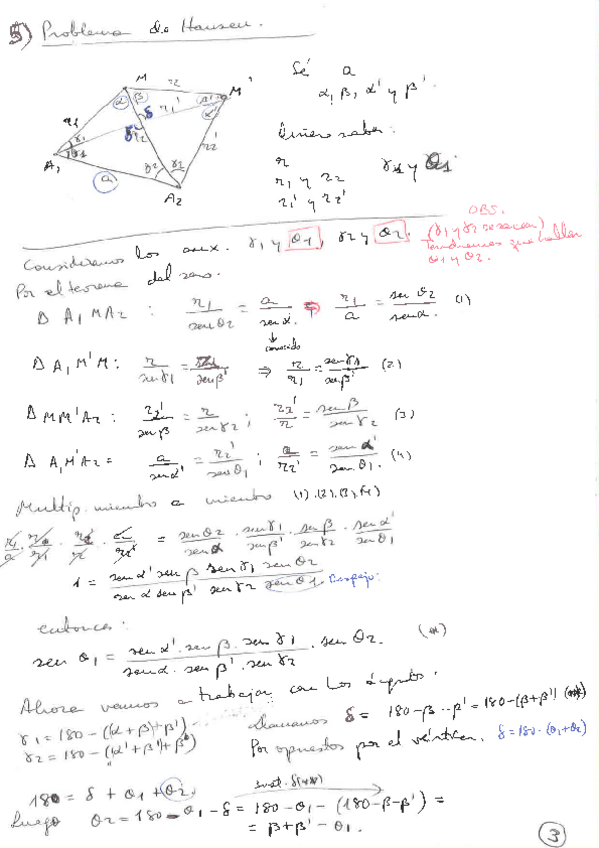 5) Problema de Hansen.
M
r
M'
α
β
δ
r1'
β'
α'
r1
δ
r2
r2'
γ1
θ1
A1
a
θ2
γ2
A2
Sé a
α, β, α' y β'.
Quiero saber:
r
r1 y r2
r1' y r2'
γ1 y θ1.
OBS.
Consideramos los aux. γ1 y θ1, γ2 y θ2.
(γ1 y γ2 se sacan)
Tendremos que hallar
θ1 y θ2.
Por el teorema del seno.
Δ A1MA2 : r1/sen θ2 = a/sen α ⇒ r1/a = sen θ2/sen α. (1)
↓
conocido
Δ A1M'M: r/sen γ1 = r1/sen β' ⇒ r/r1 = sen γ1/sen β' (2)
Δ MM'A2: r2'/sen β = r/sen γ2 ; r2'/r = sen β/sen γ2 (3)
Δ A1M'A2 = a/sen α' = r2'/sen θ1 ; a/r2' = sen α'/sen θ1. (4)
Multip. miembro a miembro (1).(2).(3).(4)
r1/a · r/r1 · r2'/r · a/r2' = sen θ2/sen α · sen γ1/sen β' · sen β/sen γ2 · sen α'/sen θ1
1 = sen α' sen β sen γ1 sen θ2 / sen α sen β' sen γ2 sen θ1. Despejo:
entonces:
sen θ1 = sen α' . sen β . sen γ1 / sen α . sen β' . sen γ2 . sen θ2. (*)
Ahora vamos a trabajar con los ángulos:
γ1 = 180 - ((α+β)+β')
γ2 = 180 - ((α'+β')+β)
Llamamos δ = 180 - β - β' = 180 - (β+β') (**)
Por opuestos por el vértice. δ = 180 - (θ1+θ2)
180 = δ + θ1 + θ2
sust. δ (**)
Luego θ2 = 180 - θ1 - δ = 180 - θ1 - (180 - β - β') =
= β + β' - θ1.
3